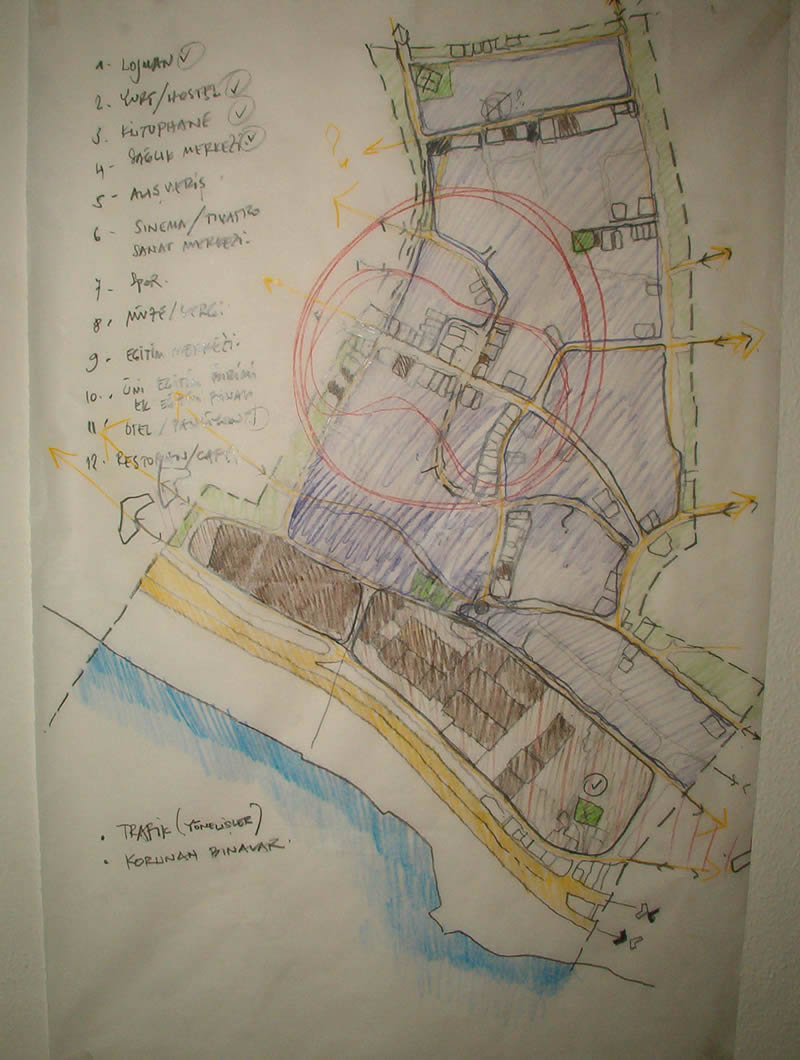 1- LOJMAN
2. YURT/HOSTEL
3. KÜTÜPHANE
4- SAĞLIK MERKEZİ
5- ALIŞVERİŞ
6- SİNEMA/TİYATRO
SANAT MERKEZİ.
7- SPOR.
8. MÜZE/SERGİ
9- EĞİTİM MERKEZİ.
10. ÜNİ EĞİTİM BİRİMİ
EK EĞİTİM BİNASI
11. OTEL/
12. RESTORAN/CAFE
?
?
• TRAFİK (YÖNELİŞLER)
• KORUNAN BİNALAR.